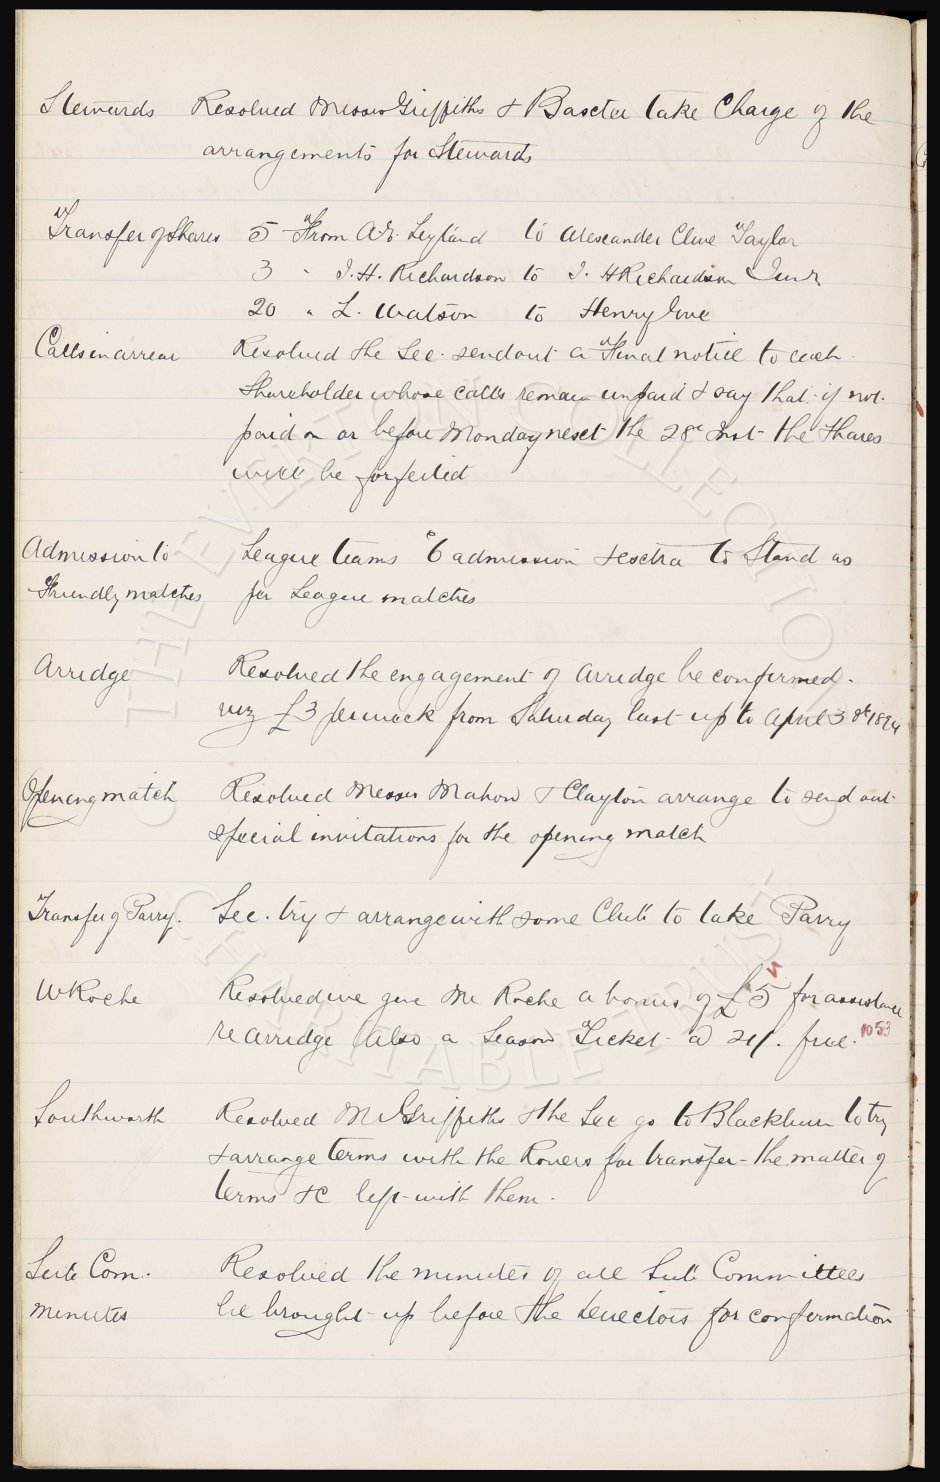 Stewards Resolved Messrs Griffiths & Baxter take Charge of the
arrangements for Stewards
Transfer of Shares 5 From A. Leyland to Alexander Clive Taylor
3 " J. H. Richardson to J. H Richardson Junr
20 " L. Watson to Henry
Calls in arrear Resolved the Sec. send out a Final notice to each
Shareholder whose calls remain unpaid & say that if not
paid on or before Monday next the 28th Inst the Shares
will be forfeited
Admission to League teams 6d admission & extra to Stand as
Friendly matches for League matches
Arridge Resolved the engagement of Arridge be confirmed.
viz £3 per week from Saturday last up to April 30th 1894
Opening match Resolved Messrs Mahon & Clayton arrange to send out
special invitations for the opening match
Transfer of Parry. Sec. try & arrange with some Club to take Parry
W Roche Resolved we give Mr Roche a bonus of £5 for assistance
re Arridge also a Season Ticket @ 21/. free. 1053
Southworth Resolved Mr Griffiths & the Sec go to Blackburn to try
& arrange terms with the Rovers for transfer - the matter of
terms &c left with them.
Sub Com. Resolved the minutes of all Sub Committees
minutes be brought up before the Directors for confirmation
THE EVERTON COLLECTION
CHARITABLE TRUST